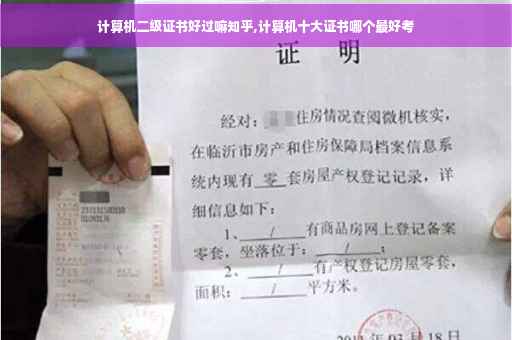 计算机二级证书好过嘛知乎,计算机十大证书哪个最好考
证 明
经对: 住房情况查阅微机核实,
在临沂市房产和住房保障局档案信息系
统内现有 零 套房屋产权登记记录,详
细信息如下:
1、 / 有商品房网上登记备案
零套,坐落位于: / ;
2、 / 有产权登记房屋零套,
面积: / 平方米。
03 月 18 日